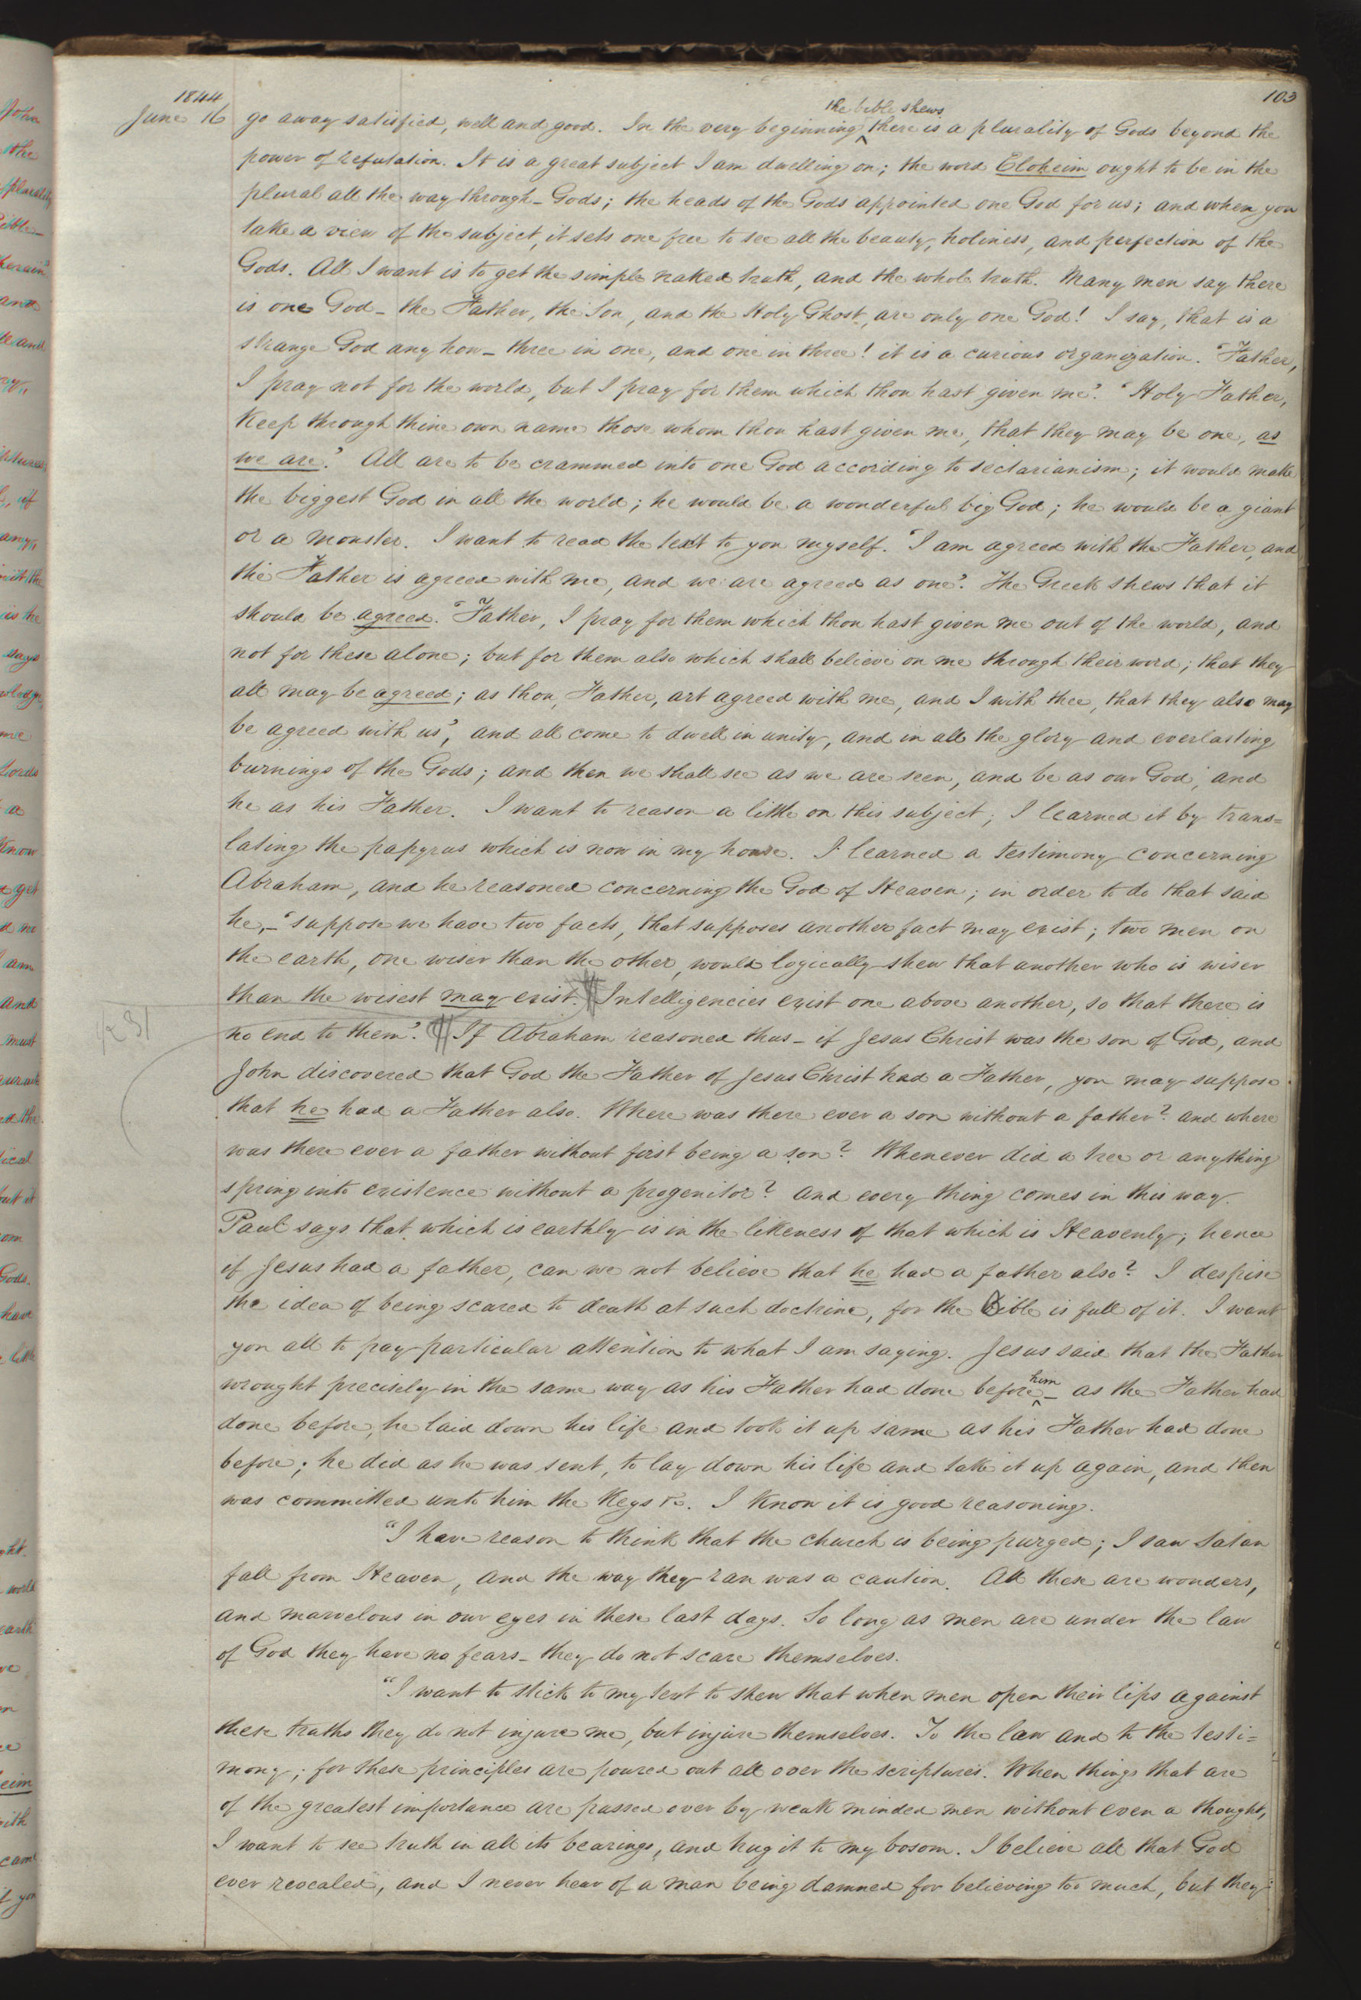 103
1844
June 16
the bible shews
go away satisfied, well and good. In the very beginning ^ there is a plurality of Gods beyond the
power of refutation. It is a great subject I am dwelling on; the word Eloheim ought to be in the
plural all the way through - Gods; the heads of the Gods appointed one God for us; and when you
take a view of the subject, it sets one free to see all the beauty, holiness, and perfection of the
Gods. All I want is to get the simple naked truth, and the whole truth. Many men say there
is one God - the Father, the Son, and the Holy Ghost, are only one God! I say, that is a
strange God any how - three in one, and one in three! it is a curious organization. "Father,
I pray not for the world, but I pray for them which thou hast given me". "Holy Father,
Keep through thine own name those whom thou hast given me, that they may be one, as
we are". All are to be crammed into one God according to sectarianism; it would make
the biggest God in all the world; he would be a wonderful big God; he would be a giant
or a monster. I want to read the text to you myself. "I am agreed with the Father, and
the Father is agreed with me, and we are agreed as one". The Greek shews that it
should be agreed. "Father, I pray for them which thou hast given me out of the world, and
not for these alone; but for them also which shall believe on me through their word; that they
all may be agreed; as thou, Father, art agreed with me, and I with thee, that they also may
be agreed with us", and all come to dwell in unity, and in all the glory and everlasting
burnings of the Gods; and then we shall see as we are seen, and be as our God, and
he as his Father. I want to reason a little on this subject; I learned it by trans=
lating the papyrus which is now in my house. I learned a testimony concerning
Abraham, and he reasoned concerning the God of Heaven; in order to do that said
he, - "suppose we have two facts, that supposes another fact may exist; two men on
the earth, one wiser than the other, would logically shew that another who is wiser
than the wisest may exist. ¶ Intelligencies exist one above another, so that there is
no end to them". ¶ If Abraham reasoned thus - if Jesus Christ was the son of God, and
John discovered that God the Father of Jesus Christ had a Father, you may suppose
that he had a Father also. Where was there ever a son without a father? and where
was there ever a father without first being a son? Whenever did a tree or anything
spring into existence without a progenitor? and every thing comes in this way.
Paul says that which is earthly is in the likeness of that which is Heavenly; hence
if Jesus had a father, can we not believe that he had a father also? I despise
the idea of being scared to death at such doctrine, for the Bible is full of it. I want
you all to pay particular attention to what I am saying. Jesus said that the Father
him
wrought precisely in the same way as his Father had done before ^ - as the Father had
done before, he laid down his life and took it up same as his Father had done
before; he did as he was sent, to lay down his life and take it up again, and then
was committed unto him the Keys &c. I know it is good reasoning.
"I have reason to think that the church is being purged; I saw Satan
fall from Heaven, and the way they ran was a caution. All these are wonders,
and marvelous in our eyes in these last days. So long as men are under the law
of God they have no fears - they do not scare themselves.
"I want to stick to my text to shew that when men open their lips against
these truths they do not injure me, but injure themselves. To the law and to the testi=
mony; for these principles are poured out all over the scriptures. When things that are
of the greatest importance are passed over by weak minded men without even a thought,
I want to see truth in all its bearings, and hug it to my bosom. I believe all that God
ever revealed, and I never hear of a man being damned for believing too much, but they